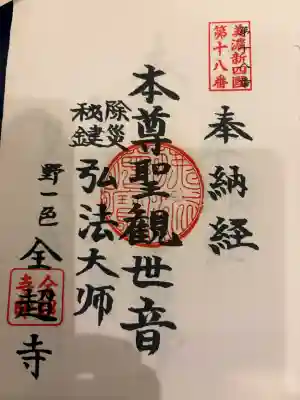 美濃新四國
第十八番
奉納経
本尊聖観世音
除災
秘鍵
弘法大師
野一邑
全超寺